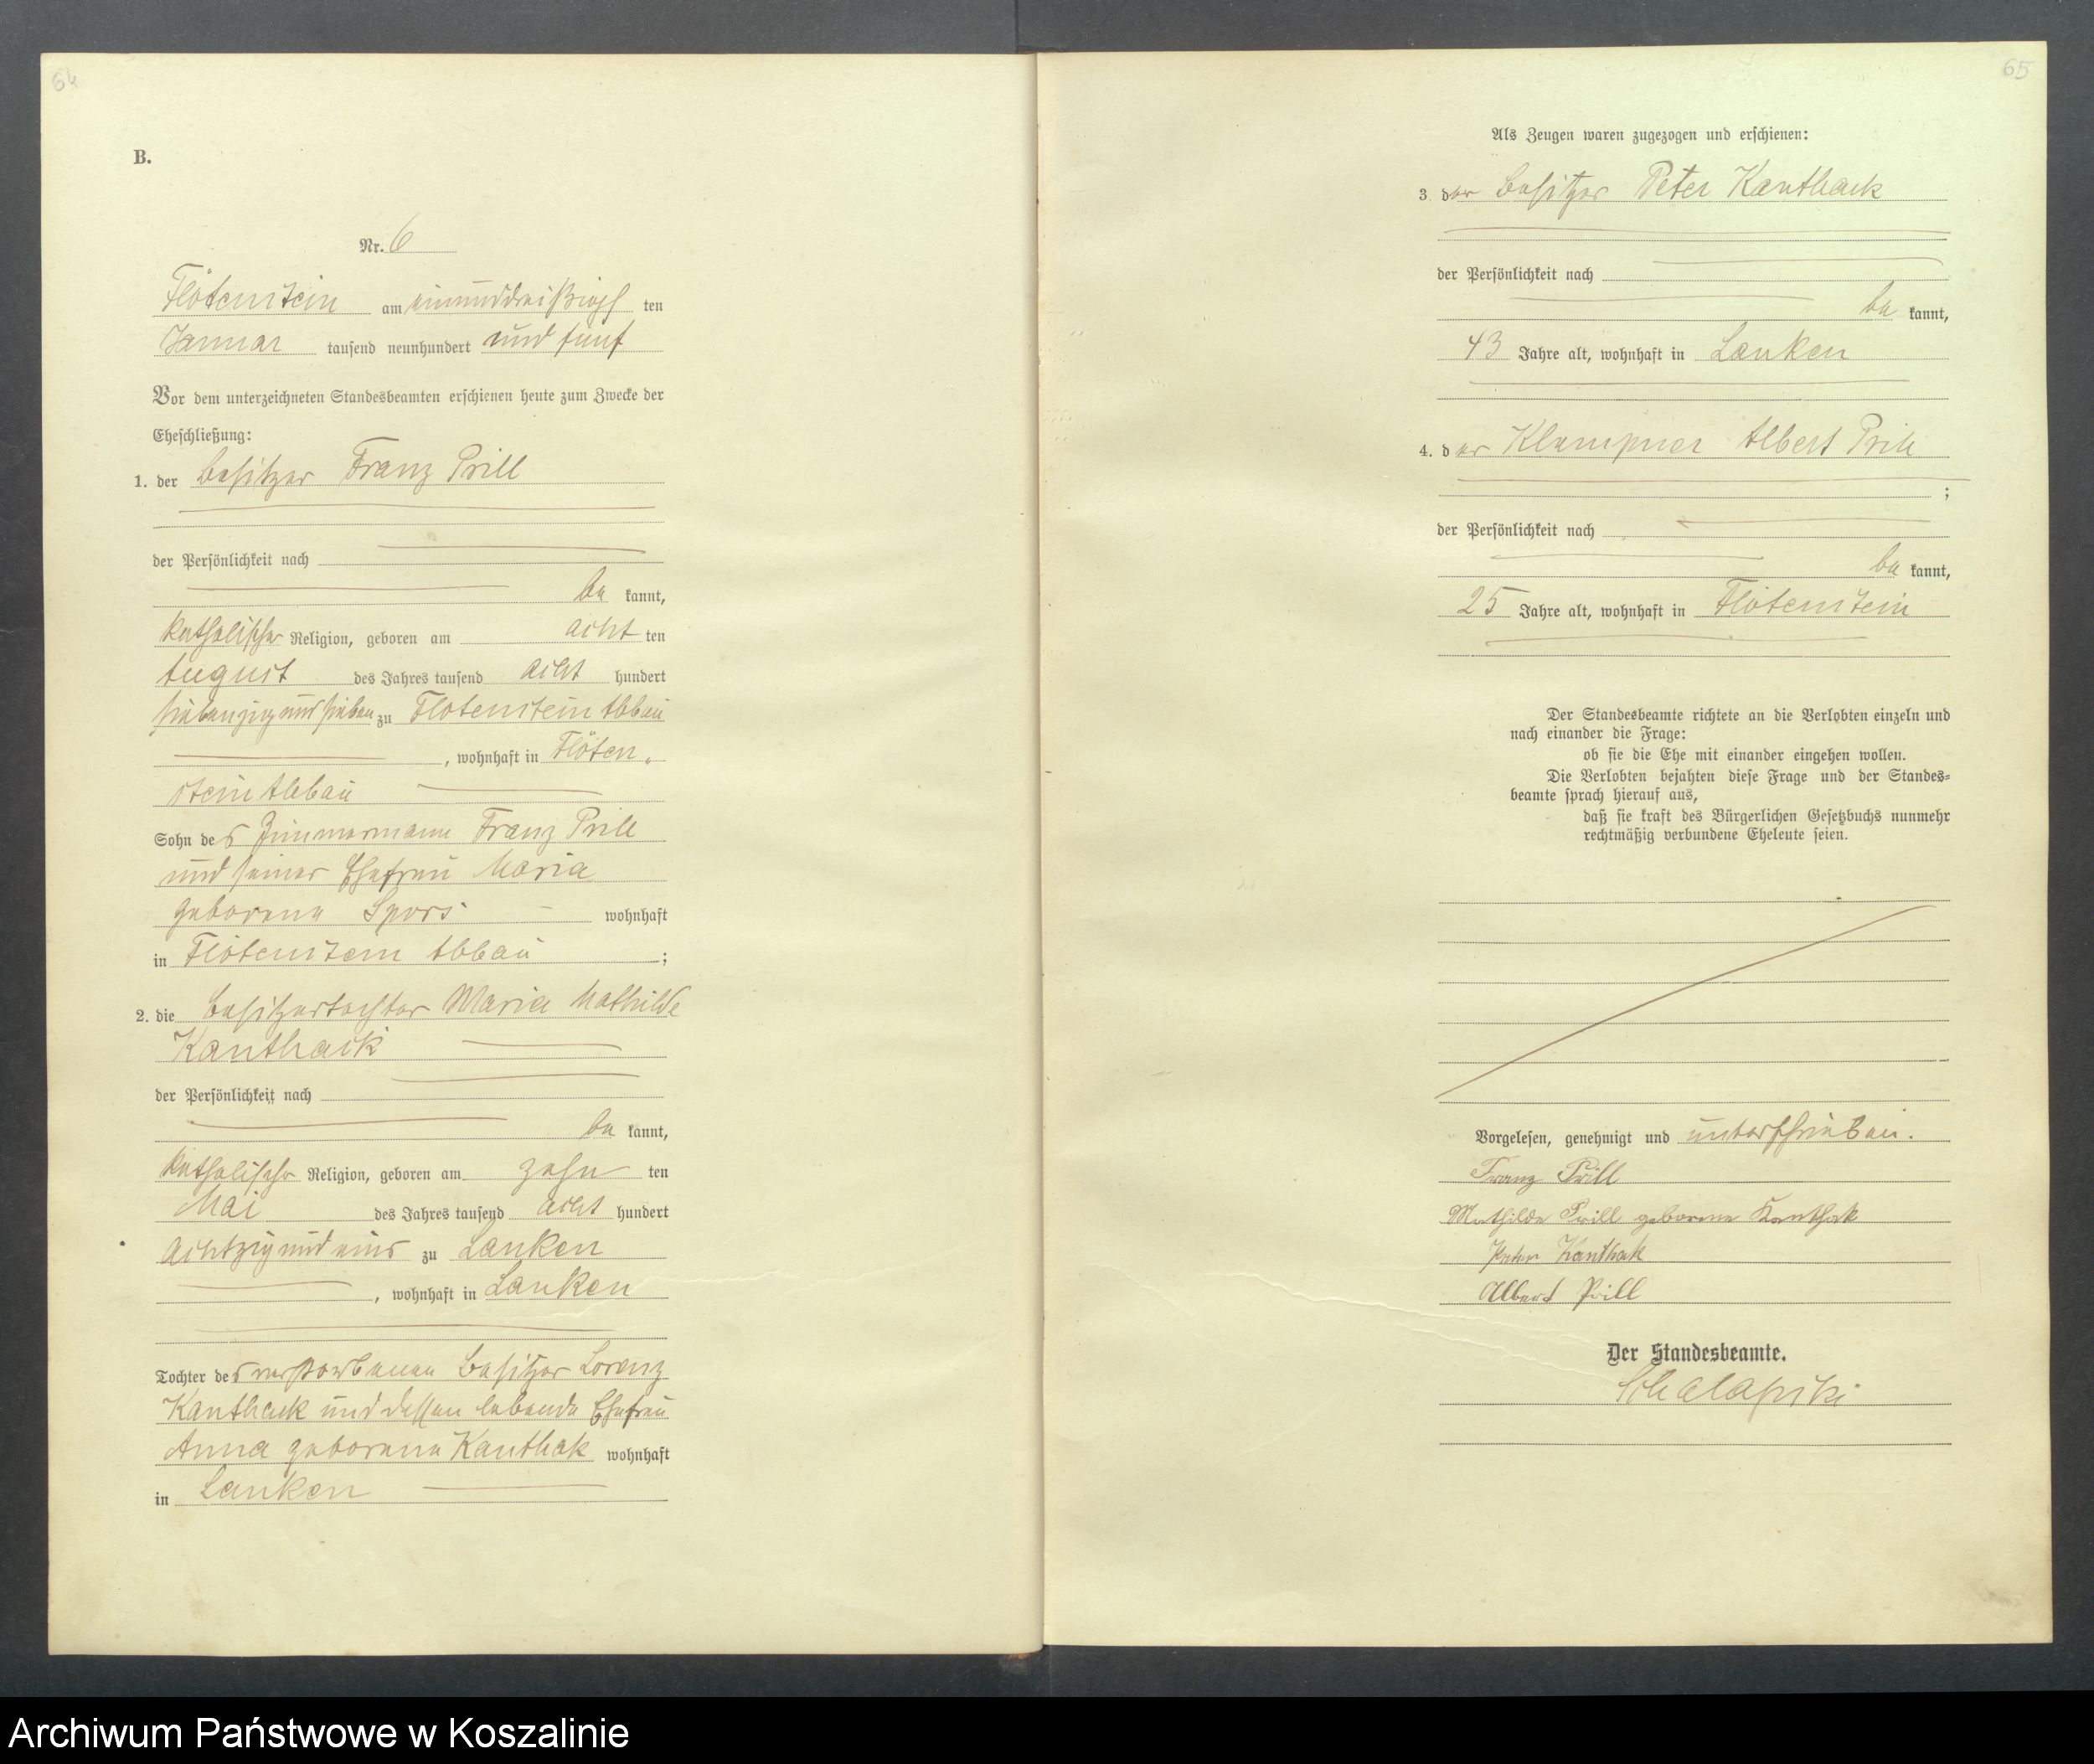 64
B.
Nr. 6
Flötenstein am einunddreißigsten
Januar tausend neunhundert und fünf
Vor dem unterzeichneten Standesbeamten erschienen heute zum Zwecke der
Eheschließung:
1. der Besitzer Franz Prill
der Persönlichkeit nach
be kannt,
katholischer Religion, geboren am acht ten
August des Jahres tausend acht hundert
siebenzig und sieben zu Flötenstein Abbau
, wohnhaft in Flöten„
stein Abbau
Sohn des Zimmermann Franz Prill
und seiner Ehefrau Maria
geborene Spors wohnhaft
in Flötenstein Abbau ;
2. die Besitzertochter Maria Mathilde
Kanthack
der Persönlichkeit nach
be kannt,
katholischer Religion, geboren am zehn ten
Mai des Jahres tausend acht hundert
achtzig und eins zu Lanken
, wohnhaft in Lanken
Tochter des verstorbenen Besitzer Lorenz
Kanthack und dessen lebende Ehefrau
Anna geborene Kanthak wohnhaft
in Lanken
65
Als Zeugen waren zugezogen und erschienen:
3. der Besitzer Peter Kanthack
der Persönlichkeit nach
be kannt,
43 Jahre alt, wohnhaft in Lanken
4. der Klempner Albert Prill
;
der Persönlichkeit nach
be kannt,
25 Jahre alt, wohnhaft in Flötenstein
Der Standesbeamte richtete an die Verlobten einzeln und
nach einander die Frage:
ob sie die Ehe mit einander eingehen wollen.
Die Verlobten bejahten diese Frage und der Standes=
beamte sprach hierauf aus,
daß sie kraft des Bürgerlichen Gesetzbuchs nunmehr
rechtmäßig verbundene Eheleute seien.
Vorgelesen, genehmigt und unterschrieben.
Franz Prill
Mathilde Prill geborene Kanthak
Peter Kanthak
Albert Prill
Der Standesbeamte.
Archiwum Państwowe w Koszalinie